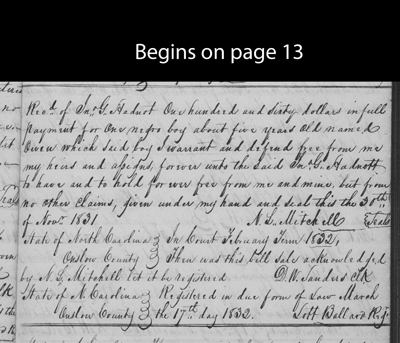 Begins on page 13
Recd. of Jno. G. Hadnot One hundred and sixty dollars in full
payment for One negro boy about five years old named
Owen which said boy I warrant and defend free from me
my heirs and assigns, forever unto the said Jno. G. Hadnott
to have and to hold forever free from me and mine, but from
no other claims, given under my hand and seal this the 30th
of Novr. 1831 N. L. Mitchell Seal
State of North Carolina In Court February Term 1832,
Onslow County Then was this bill sale acknowledged
by N. L. Mitchell let it be registered D. W. Sanders Clk
State of N. Carolina Registered in due form of Law March
Onslow County the 17th day 1832. Lott Ballard Regr